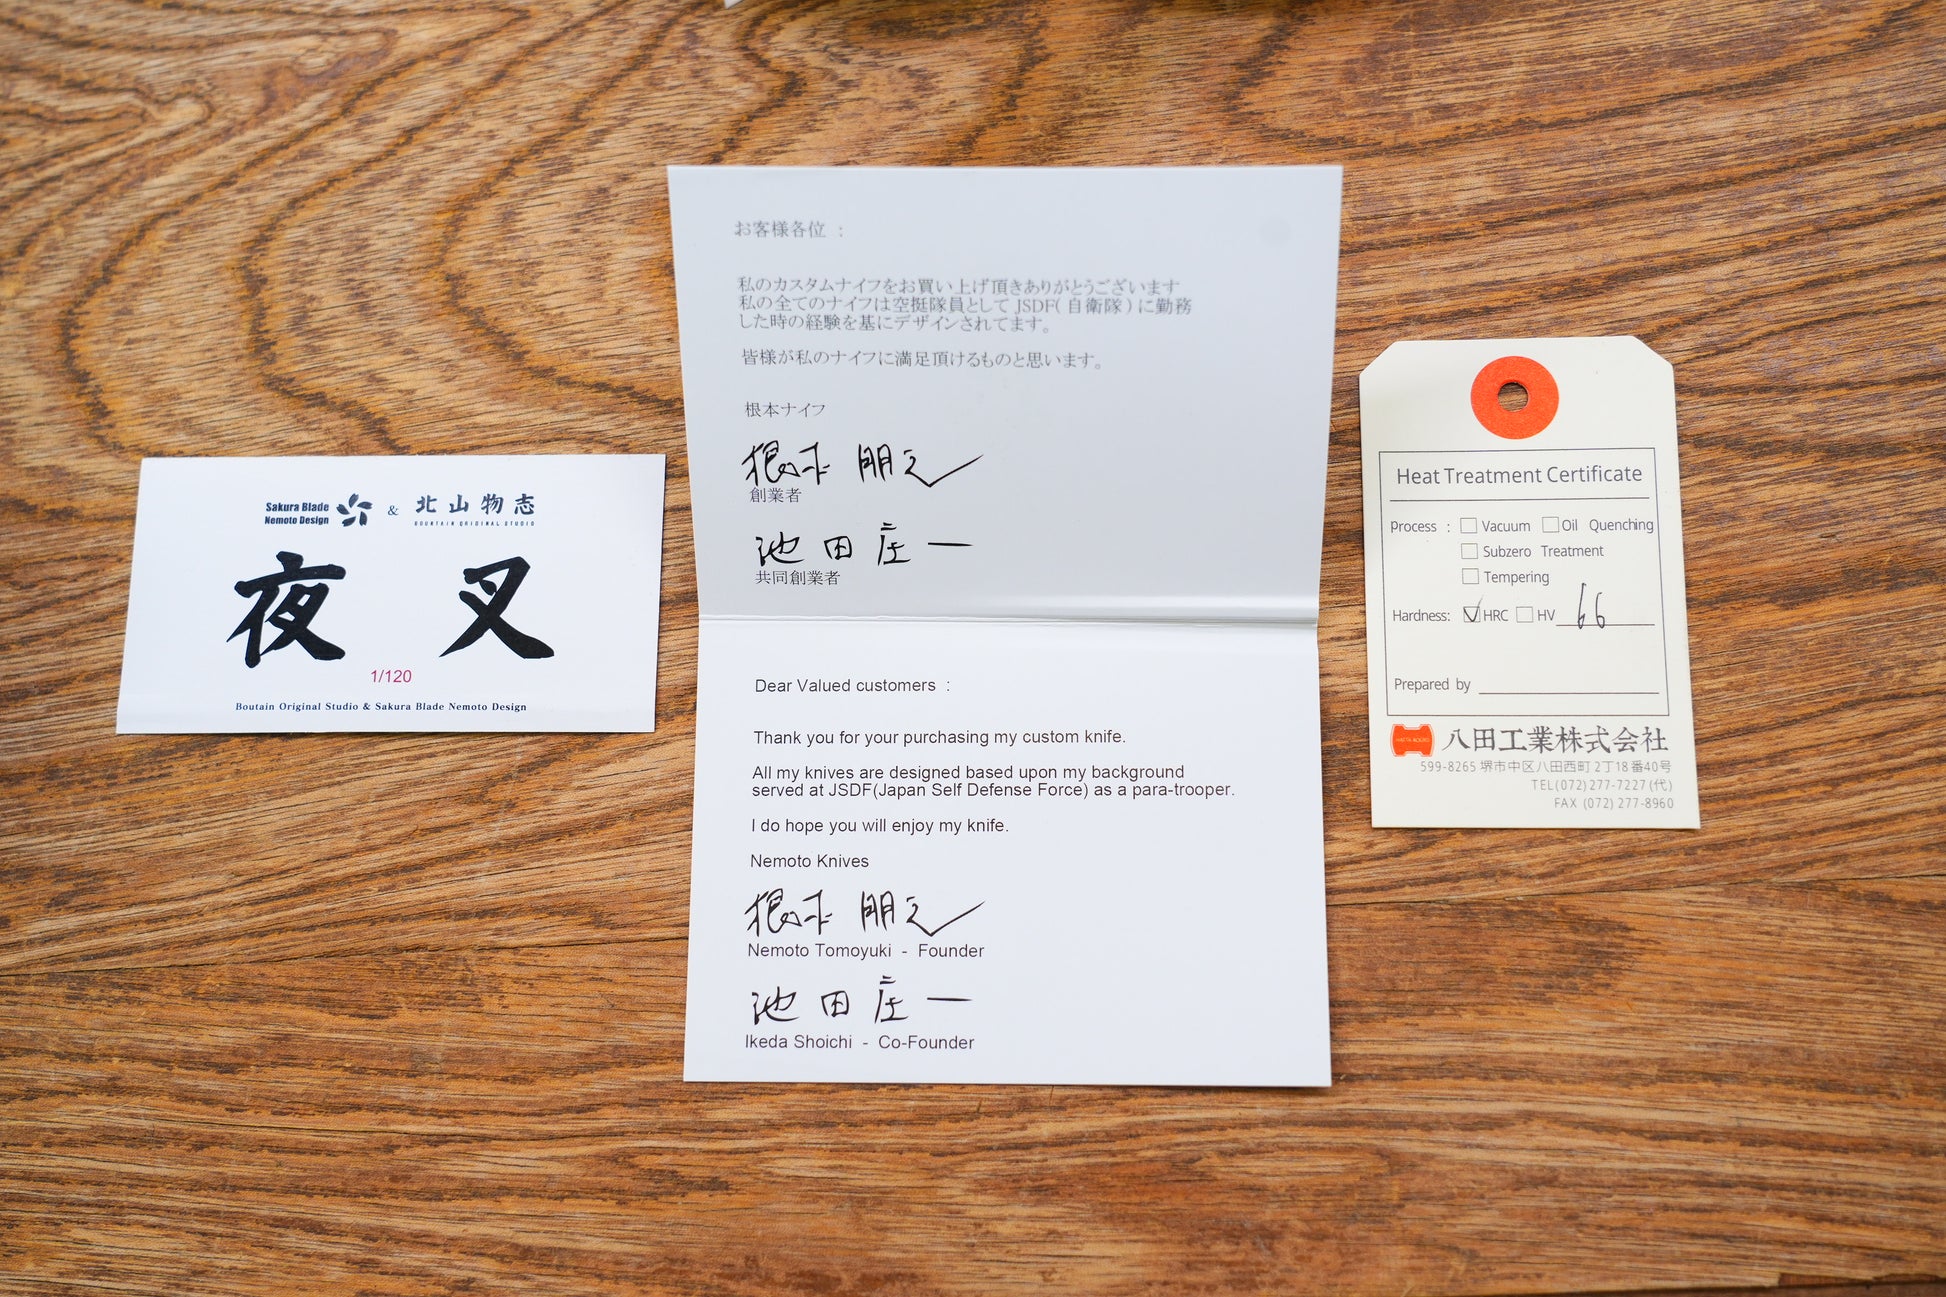 Sakura Blade
Nemoto Design
&
北山物志
BOUTAIN ORIGINAL STUDIO
夜叉
1/120
Boutain Original Studio & Sakura Blade Nemoto Design
お客様各位 :
私のカスタムナイフをお買い上げ頂きありがとうございます
私の全てのナイフは空挺隊員として JSDF( 自衛隊 ) に勤務
した時の経験を基にデザインされてます。
皆様が私のナイフに満足頂けるものと思います。
根本ナイフ
根本 朋之
創業者
池田庄一
共同創業者
Dear Valued customers :
Thank you for your purchasing my custom knife.
All my knives are designed based upon my background
served at JSDF(Japan Self Defense Force) as a para-trooper.
I do hope you will enjoy my knife.
Nemoto Knives
根本 朋之
Nemoto Tomoyuki - Founder
池田庄一
Ikeda Shoichi - Co-Founder
Heat Treatment Certificate
Process : Vacuum Oil Quenching
Subzero Treatment
Tempering
Hardness: HRC HV 66
Prepared by
八田工業株式会社
599-8265 堺市中区八田西町 2丁18番40号
TEL(072)277-7227(代)
FAX (072) 277-8960